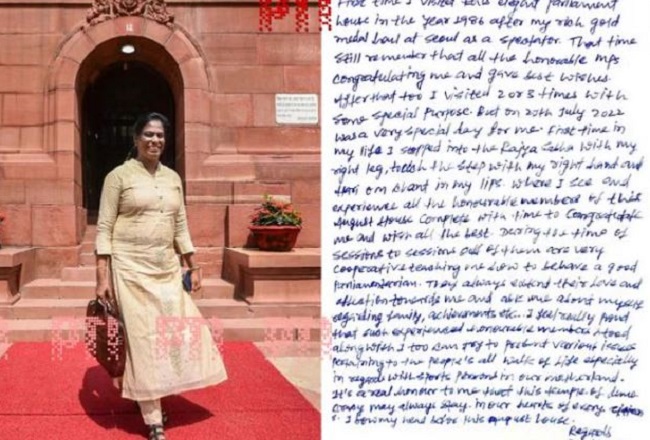 First time I visited the elegant parliament
house in the year 1986 after my rich gold
medal haul at seoul as a spectator. That time
still remember that all the honorable MPs
congratulating me and gave best wishes
After that too I visited 2 or 3 times with
some special purpose. But on 20th July 2022
was a very special day for me. First time in
my life I stepped into the Rajya Sabha with my
right leg, touch the step with my right hand and
Hari om chant in my lips. where I see and
experience all the honourable members of this
August House Complete with time to Congratulate
me and wish all the best. During the time of
sessions to sessions all of them are very
cooperative teaching me how to behave a good
Parliamentarian. They always extend their love and
affection towards me and ask me about myself
regarding family, achievements etc. I feel really proud
that such experienced honourable members
along with I too can try to present various issues
pertaining to the people's all walk of life especially
in regard with sports person in our motherland.
It's a real honour to me that this temple of demo
cracy may always stay in our hearts of every
I bow my head before this august house.
Regards